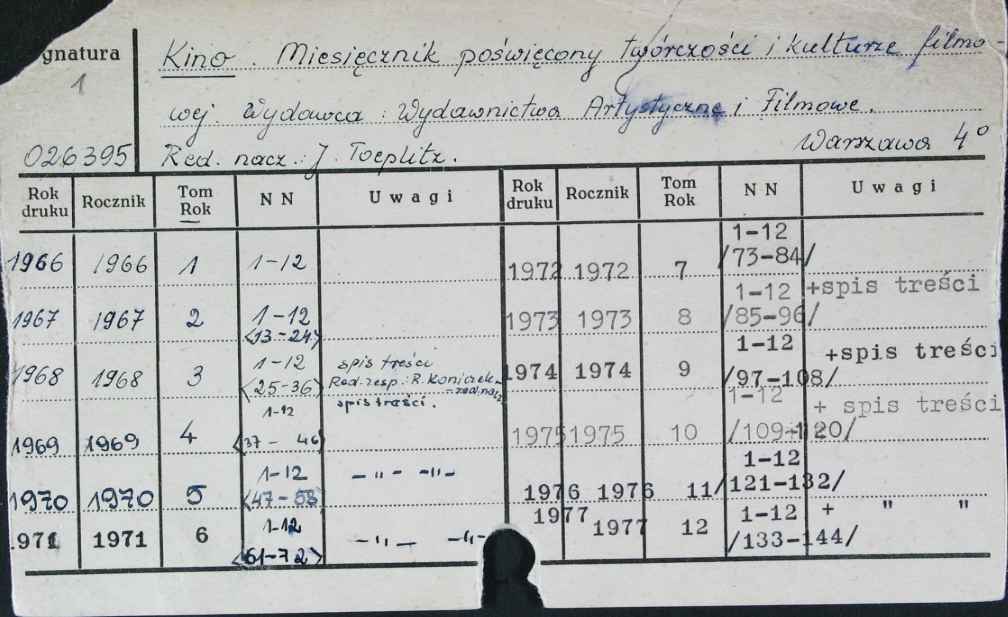 gnatura
1
026395
Kino. Miesięcznik poświęcony twórczości i kulturze filmo
wej. Wydawca: Wydawnictwa Artystyczne i Filmowe.
Warszawa 4°
Red. nacz.: J. Toeplitz.
Rok druku Rocznik Tom Rok NN Uwagi Rok druku Rocznik Tom Rok NN Uwagi
1966 1966 1 1-12
1967 1967 2 1-12 <13-24>
1968 1968 3 1-12 <25-36> spis treści Red. resp.: R. Koniczek - red. nacz.
1969 1969 4 1-12 <37 - 46> spis treści.
1970 1970 5 1-12 <47-58> - " - - " -
1971 1971 6 1-12 <61-72> - " - - " -
1972 1972 7 1-12 /73-84/
1973 1973 8 1-12 /85-96/ +spis treści
1974 1974 9 1-12 /97-108/ +spis treści
1975 1975 10 1-12 /109-120/ + spis treści
1976 1976 11 1-12 /121-132/
1977 1977 12 1-12 /133-144/ + " "